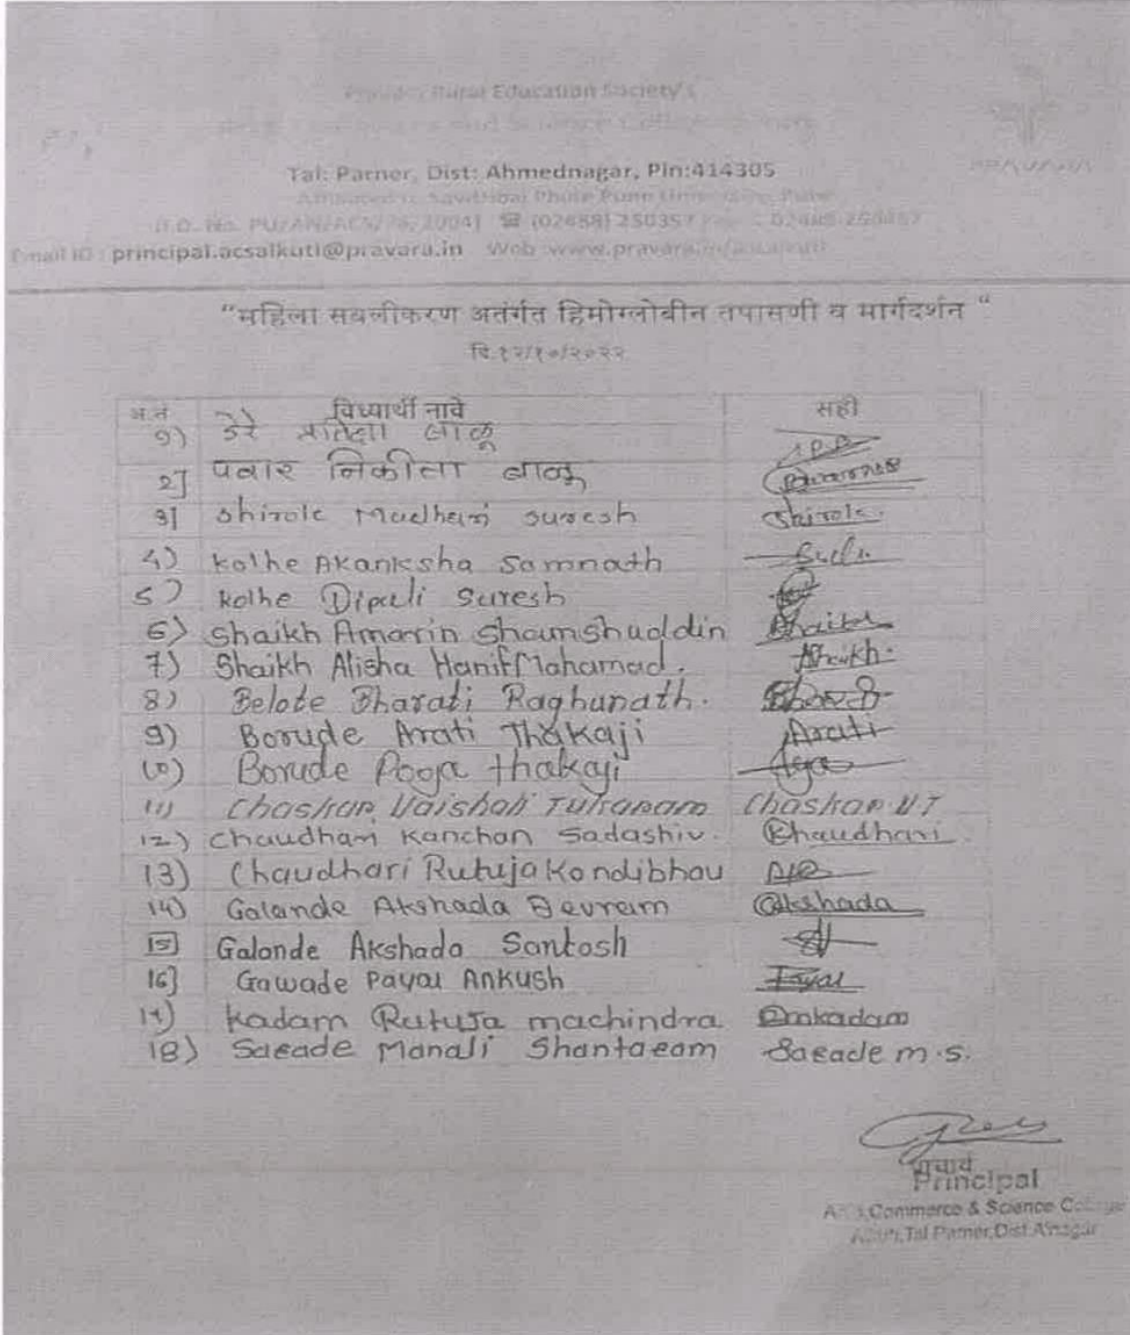 Rural Education Society's
Tal: Parner, Dist: Ahmednagar, Pin:414305
Email ID : principal.acsalkuti@pravara.in Web
PRAVARA
"महिला सबलीकरण अतंर्गत हिमोग्लोबीन तपासणी व मार्गदर्शन "
दि.१२/१०/२०२२
अ.नं विध्यार्थी नावे सही
१) डेरे लाळू
2] पवार निकीता बाळू
3] Shirole Madhuri Suresh Shirole.
4) Kolhe Akanksha Somnath
5) Kolhe Dipali Suresh
6) Shaikh Amarin Shamshuddin Shaikh
7) Shaikh Alisha Hanif Mahamad. Shaikh.
8) Belote Bharati Raghunath.
9) Borude Arati Thakaji Arati
10) Borude Pooja thakaji
11) Chaskar Vaishali Tukaram Chaskar V.T
12) Chaudhari Kanchan Sadashiv. Chaudhari
13) Chaudhari Rutuja Kondibhau
14) Galande Akshada Devram Akshada
15] Galande Akshada Santosh
16] Gawade Payal Ankush Payal
17) Kadam Rutuja machindra Rmkadam
18) Sarade Manali Shantaram Sarade m.s.
प्राचार्य
Principal
Commerce & Science College
Tal.Parner,Dist.A'nagar